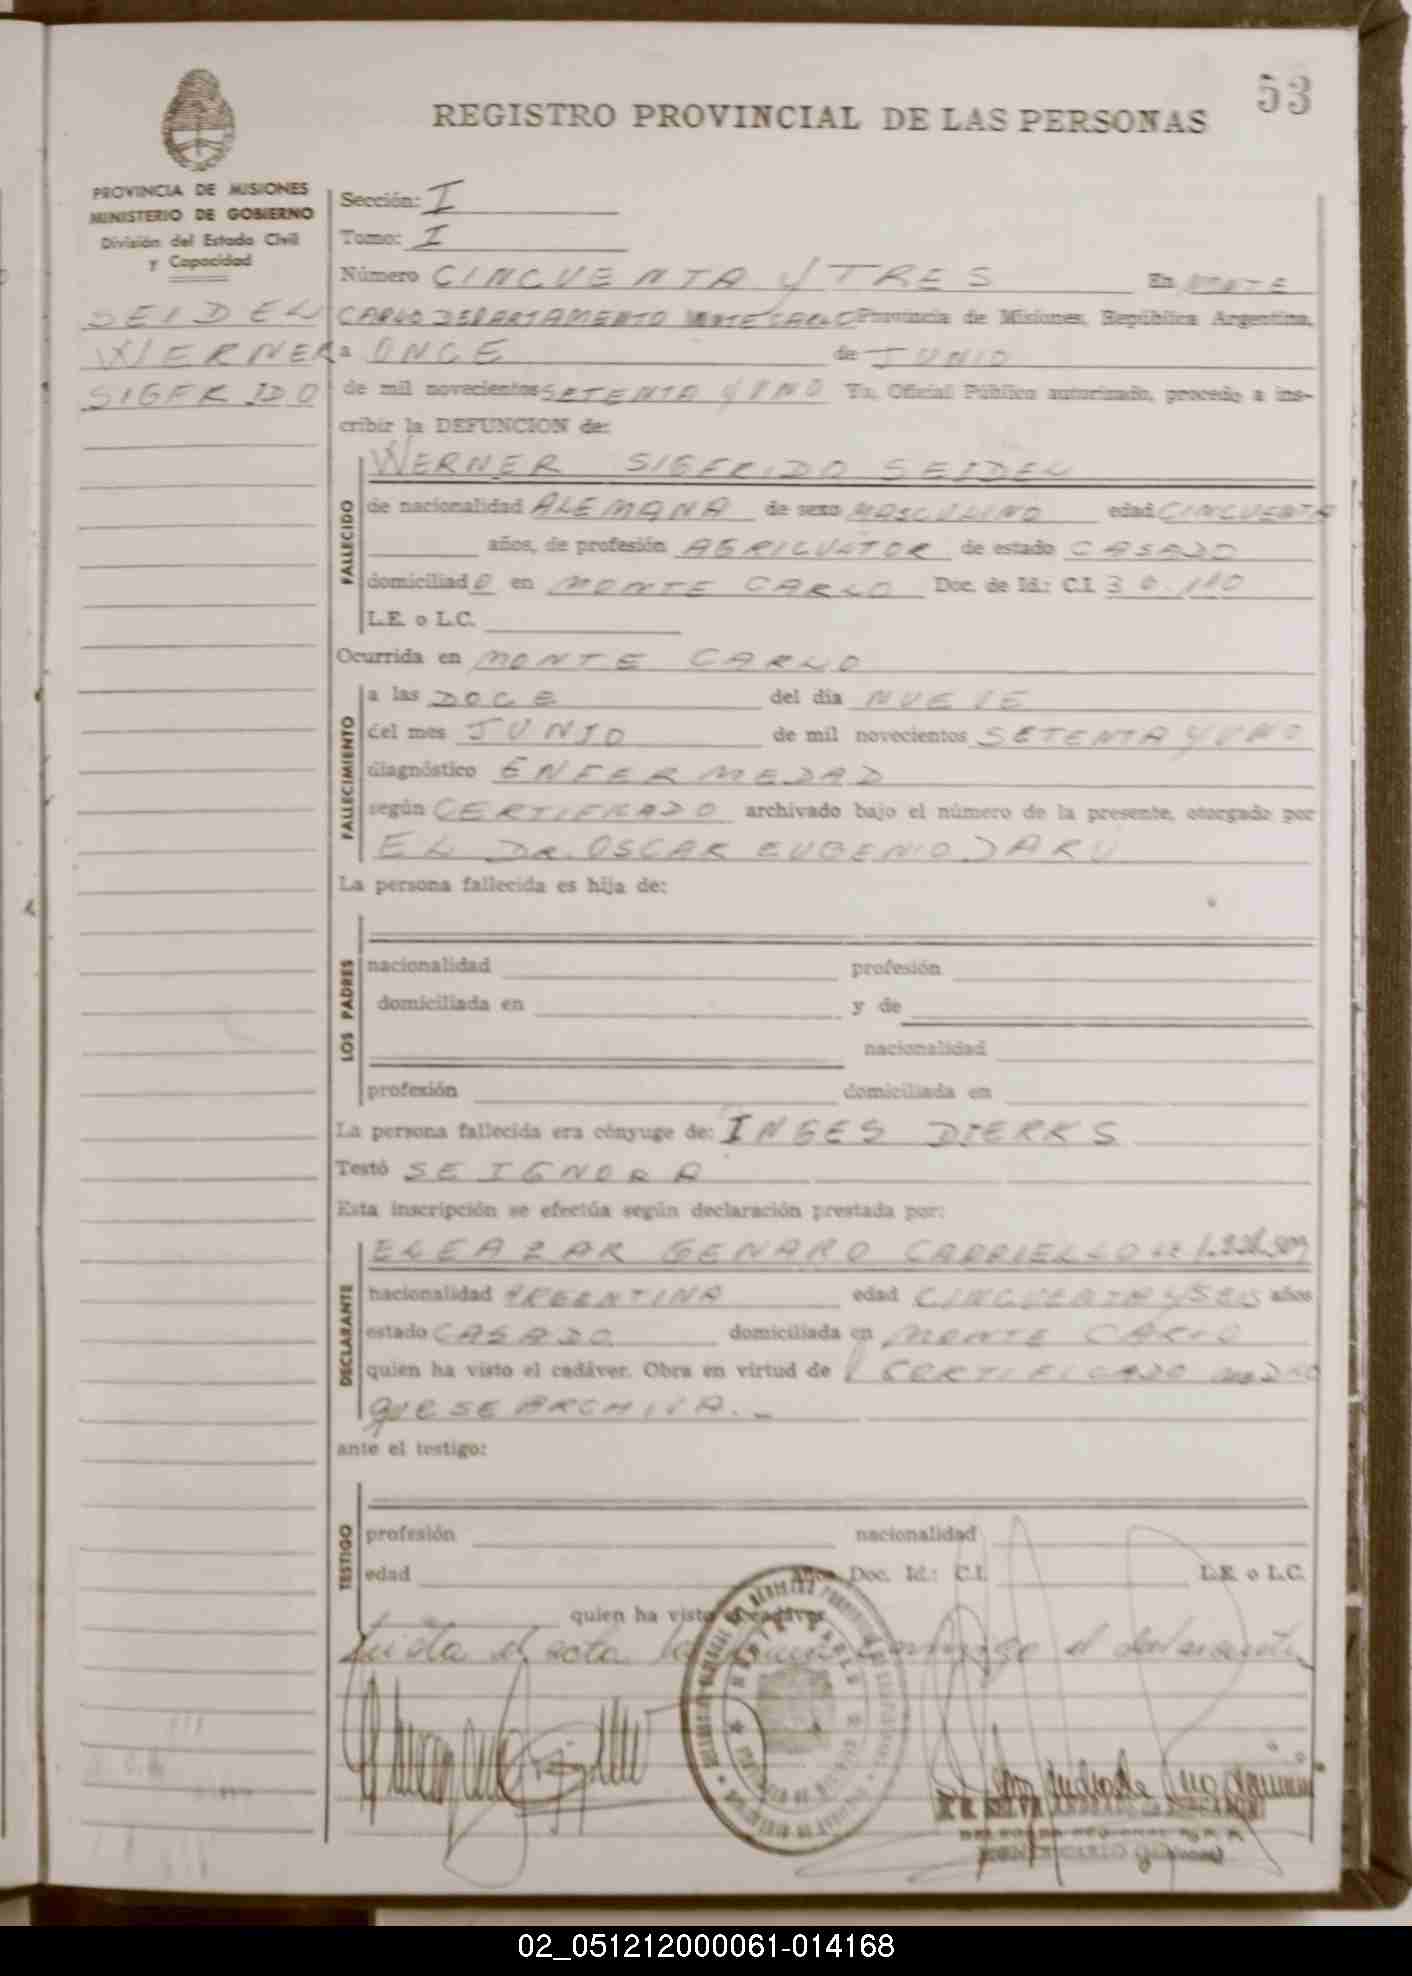 53
REGISTRO PROVINCIAL DE LAS PERSONAS
PROVINCIA DE MISIONES
MINISTERIO DE GOBIERNO
División del Estado Civil
y Capacidad
SEIDEL
WERNER
SIGFRIDO
Sección: I
Tomo: I
Número CINCUENTA Y TRES En MONTE
CARLO DEPARTAMENTO MONTECARLO Provincia de Misiones, República Argentina,
a ONCE de JUNIO
de mil novecientos SETENTA Y UNO Yo, Oficial Público autorizado, procedo a ins-
cribir la DEFUNCION de:
WERNER SIGFRIDO SEIDEL
FALLECIDO
de nacionalidad ALEMANA de sexo MASCULINO edad CINCUENTA
años, de profesión AGRICULTOR de estado CASADO
domiciliado en MONTE CARLO Doc. de Id.: C.I. 30.110
L.E. o L.C.
Ocurrida en MONTE CARLO
FALLECIMIENTO
a las DOCE del día NUEVE
del mes JUNIO de mil novecientos SETENTA Y UNO
diagnóstico ENFERMEDAD
según CERTIFICADO archivado bajo el número de la presente, otorgado por
EL DR. OSCAR EUGENIO DARU
La persona fallecida es hija de:
LOS PADRES
nacionalidad profesión
domiciliada en y de
nacionalidad
profesión domiciliada en
La persona fallecida era cónyuge de: INGES DIERKS
Testó SE IGNORA
Esta inscripción se efectúa según declaración prestada por:
DECLARANTE
ELEAZAR GENARO CARRIELLO LE
nacionalidad ARGENTINA edad CINCUENTA Y SEIS años
estado CASADO domiciliada en MONTE CARLO
quien ha visto el cadáver. Obra en virtud de CERTIFICADO
QUE SE ARCHIVA.-
ante el testigo:
TESTIGO
profesión nacionalidad
edad años Doc. Id.: C.I. L.E. o L.C.
quien ha visto el cadáver
Leida el acta la conmigo el declarante
MONTE CARLO
02_051212000061-014168